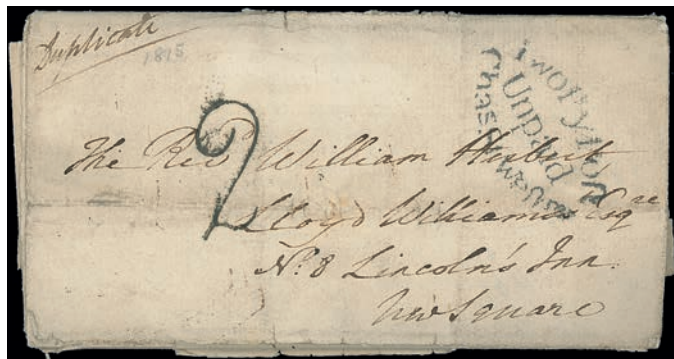 Duplicate
1815
Two Py Post
Unpaid
2
The Revd. William Herbert
Lloyd Williams Esqre
No. 8 Lincoln's Inn.
New Square